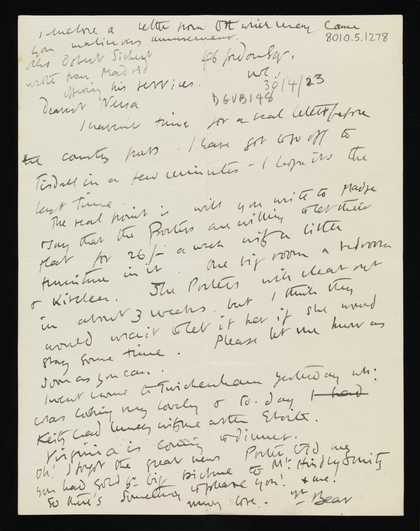 I enclose a letter from Ott which may cause
you malicious amusement.
8010.5.1278
also Robert Sickert
wrote from Madrid
offering his services.
46 Gordon Sq.
W.C.
30/4/23
DGVB148
Dearest Nessa
I havent time for a real letter before
the country posts. I have got to go off to
Tisdall in a few minutes – I hope its the
last time.
The real point is will you write to Madge
& say that the Porters are willing to let their
flat for 26/- a week with a little
furniture in it. One big room a bedroom
& Kitchen. The Porters will clear out
in about 3 weeks. but I think they
would wait to let it her if she would
stay some time. Please let me know as
soon as you can.
I went home to Twickenham yesterday wh:
was looking very lovely & to-day I had
Keity had lunch with me at the Etoile.
Virginia is coming to dinner.
Oh! I forgot the great news Porter told me
you had sold yr big picture to Mr Hindley Smith
So there's something to please you! & me!
much love. yr
– Bear